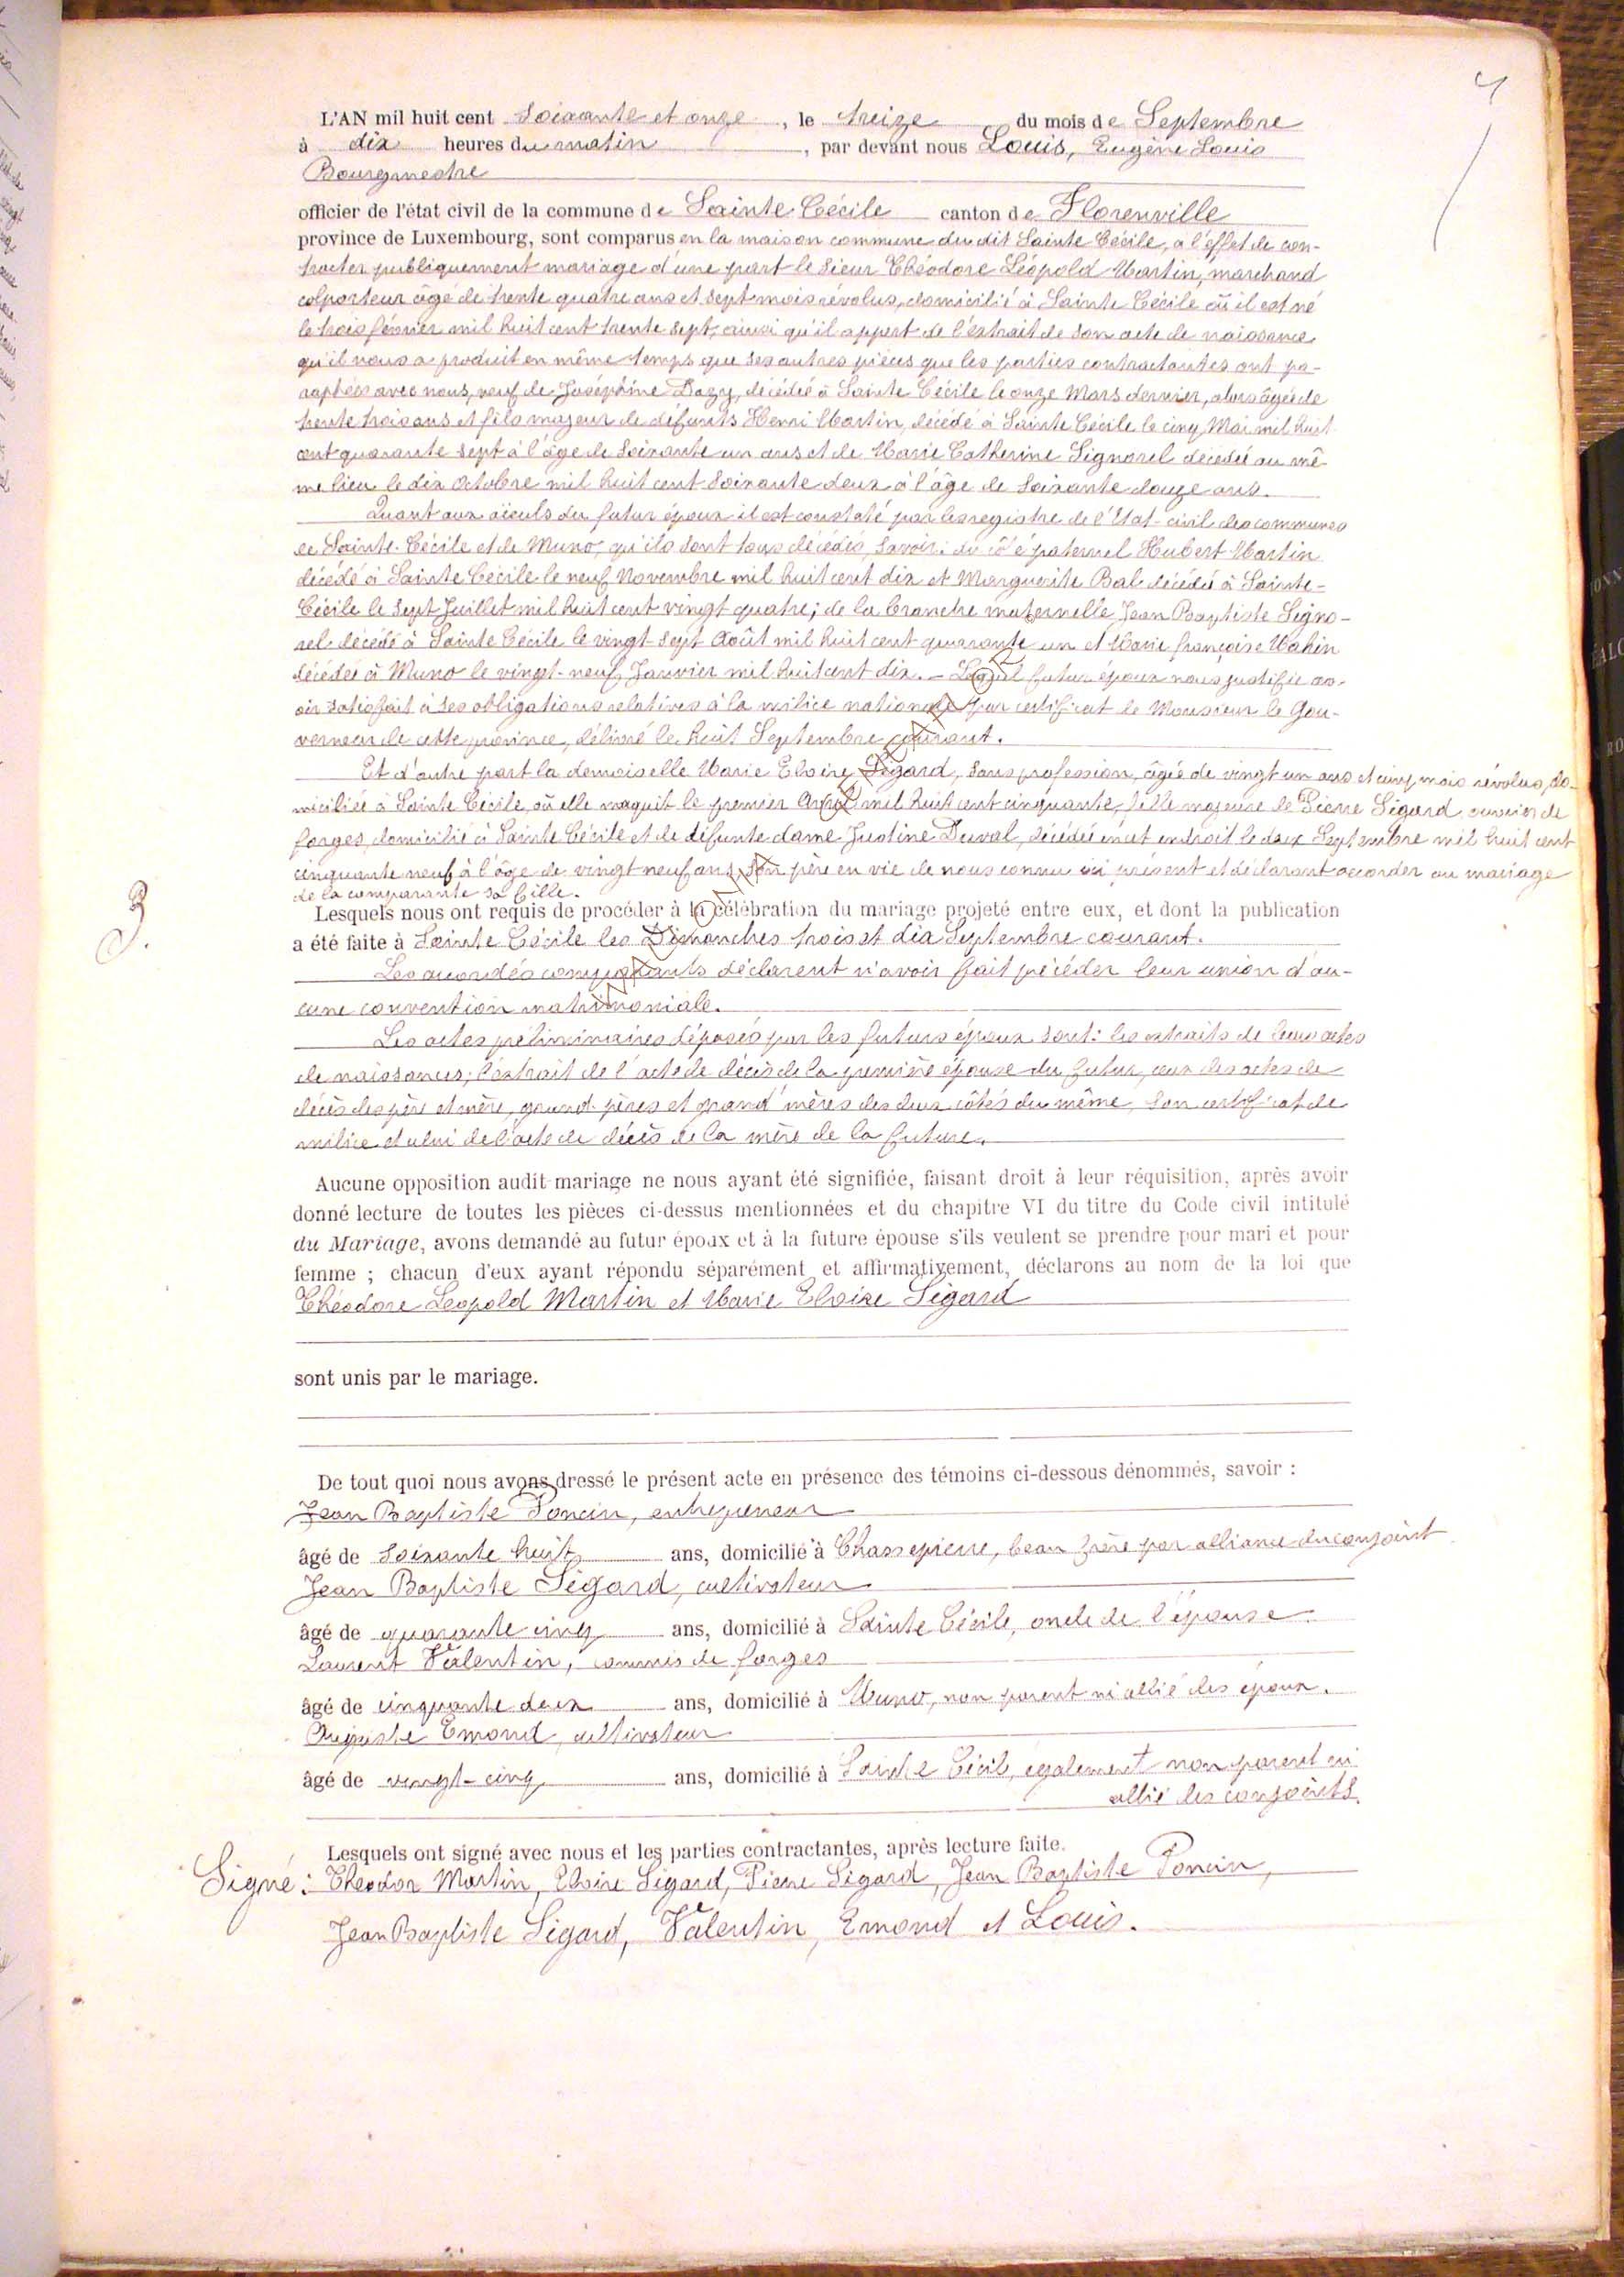 4
L'AN mil huit cent soixante et onze, le treize du mois de Septembre
à dix heures du matin, par devant nous Louis, Eugène Louis
Bourgmestre
officier de l'état civil de la commune de Sainte Cécile canton de Florenville
province de Luxembourg, sont comparus en la maison commune du dit Sainte Cécile, a l'effet de con-
tracter publiquement mariage d'une part le sieur Théodore Léopold Martin, marchand
colporteur âgé de trente quatre ans et sept mois révolus, domicilié à Sainte Cécile où il est né
le trois février mil huit cent trente sept, ainsi qu'il appert de l'extrait de son acte de naissance
qu'il nous a produit en même temps que ses autres pièces que les parties contractantes ont pa-
raphées avec nous, veuf de Joséphine Dazy, décédée à Sainte Cécile le onze Mars dernier, alors âgée de
trente trois ans et fils majeur de défunts Henri Martin, décédé à Sainte Cécile le cinq Mai mil huit
cent quarante sept à l'âge de soixante un ans et de Marie Catherine Signorel décédée au mê-
me lieu le dix Octobre mil huit cent soixante deux à l'âge de soixante douze ans.
Quant aux aïeuls du futur époux il est constaté par les registre de l'Etat-civil des communes
de Sainte-Cécile et de Muno, qu'ils sont tous décédés, savoir: du côté paternel Hubert Martin
décédé à Sainte Cécile le neuf Novembre mil huit cent dix et Marguerite Bal décédée à Sainte-
Cécile le sept Juillet mil huit cent vingt quatre; de la branche maternelle Jean Baptiste Signo-
rel décédé à Sainte Cécile le vingt-sept Août mil huit cent quarante un et Marie françoise Mahin
décédée à Muno le vingt-neuf Janvier mil huit cent dix. - Lequel futur époux nous justifie av-
oir satisfait à ses obligations relatives à la milice nationale par certificat de Monsieur le Gou-
verneur de cette province, délivré le huit Septembre courant.
Et d'autre part la demoiselle Marie Eloïre Sigard, sans profession, âgée de vingt un ans et cinq mois révolus, do-
miciliée à Sainte Cécile, où elle naquit le premier Avril mil huit cent cinquante, fille majeure de Pierre Sigard, ouvrier de
forges, domicilié à Sainte Cécile et de défunte dame Justine Duval, décédée en cet endroit le deux Septembre mil huit cent
cinquante neuf à l'âge de vingt-neuf ans, son père en vie de nous connu ici présent et déclarant accorder au mariage
de la comparante sa fille.
3.
Lesquels nous ont requis de procéder à la célébration du mariage projeté entre eux, et dont la publication
a été faite à Sainte Cécile les Dimanches trois et dix Septembre courant.
Les accordés comparants déclarent n'avoir fait précéder leur union d'au-
cune convention matrimoniale.
Les actes préliminaires déposés par les futurs époux sont: les extraits de leurs actes
de naissances; l'extrait de l'acte de décès de la première épouse du futur, ceux des actes de
décès des père et mère, grand-pères et grand'mères des deux côtés du même, son certificat de
milice et celui de l'acte de décès de la mère de la future.
Aucune opposition audit mariage ne nous ayant été signifiée, faisant droit à leur réquisition, après avoir
donné lecture de toutes les pièces ci-dessus mentionnées et du chapitre VI du titre du Code civil intitulé
du Mariage, avons demandé au futur époux et à la future épouse s'ils veulent se prendre pour mari et pour
femme ; chacun d'eux ayant répondu séparément et affirmativement, déclarons au nom de la loi que
Théodore Léopold Martin et Marie Eloïre Sigard
sont unis par le mariage.
De tout quoi nous avons dressé le présent acte en présence des témoins ci-dessous dénommés, savoir :
Jean Baptiste Poncin, entrepreneur
âgé de soixante huit ans, domicilié à Chassepierre, beau frère par alliance du conjoint
Jean Baptiste Sigard, cultivateur
âgé de quarante cinq ans, domicilié à Sainte Cécile, oncle de l'épouse
Laurent Valentin, commis de forges
âgé de cinquante deux ans, domicilié à Muno, non parent ni allié des époux.
Auguste Emond, cultivateur
âgé de vingt-cinq ans, domicilié à Sainte Cécile, également non parent ni
allié des conjoints.
Lesquels ont signé avec nous et les parties contractantes, après lecture faite.
Signé: Theodor Martin, Eloire Sigard, Pierre Sigard, Jean Baptiste Poncin,
Jean Baptiste Sigard, Valentin, Emond et Louis.